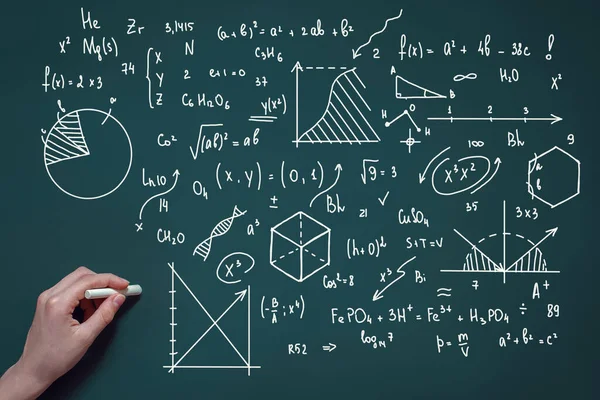 He
Zr
3,1415
(a+b)² = a² + 2ab + b²
x²
Mg(s)
N
C₃H₆
2
f(x) = a² + 4b - 38c !
f(x) = 2x3
74
{ x y z
2
e+1=0
37
A
B
∞
H₂O
x²
C₆H₁₂O₆
y(x²)
b
a
c
O
H
H
1 2 3
Co²
√(ab)² = ab
100
Bh
9
Ln10
O₄
(x, y) = (0, 1)
√9 = 3
x³x²
a
b
±
Bh
21 ✓
CuSO₄
35
3x3
x
CH₂O
a³
(h+0)²
S+T=V
x³
Cos²=8
x³
Bi
≈
7
11
A⁺
(-B/A; x⁴)
FePO₄ + 3H⁺ = Fe³⁺ + H₃PO₄
÷
89
R52 ⇒
log₁₀7
p = m/V
a² + b² = c²